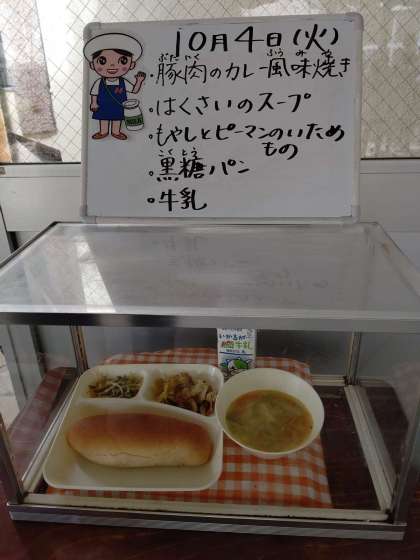 10月4日(火)
ぶたにく ふうみや
・豚肉のカレー風味焼き
・はくさいのスープ
・もやしとピーマンのいため
もの
こくとう
・黒糖パン
・牛乳
牛乳